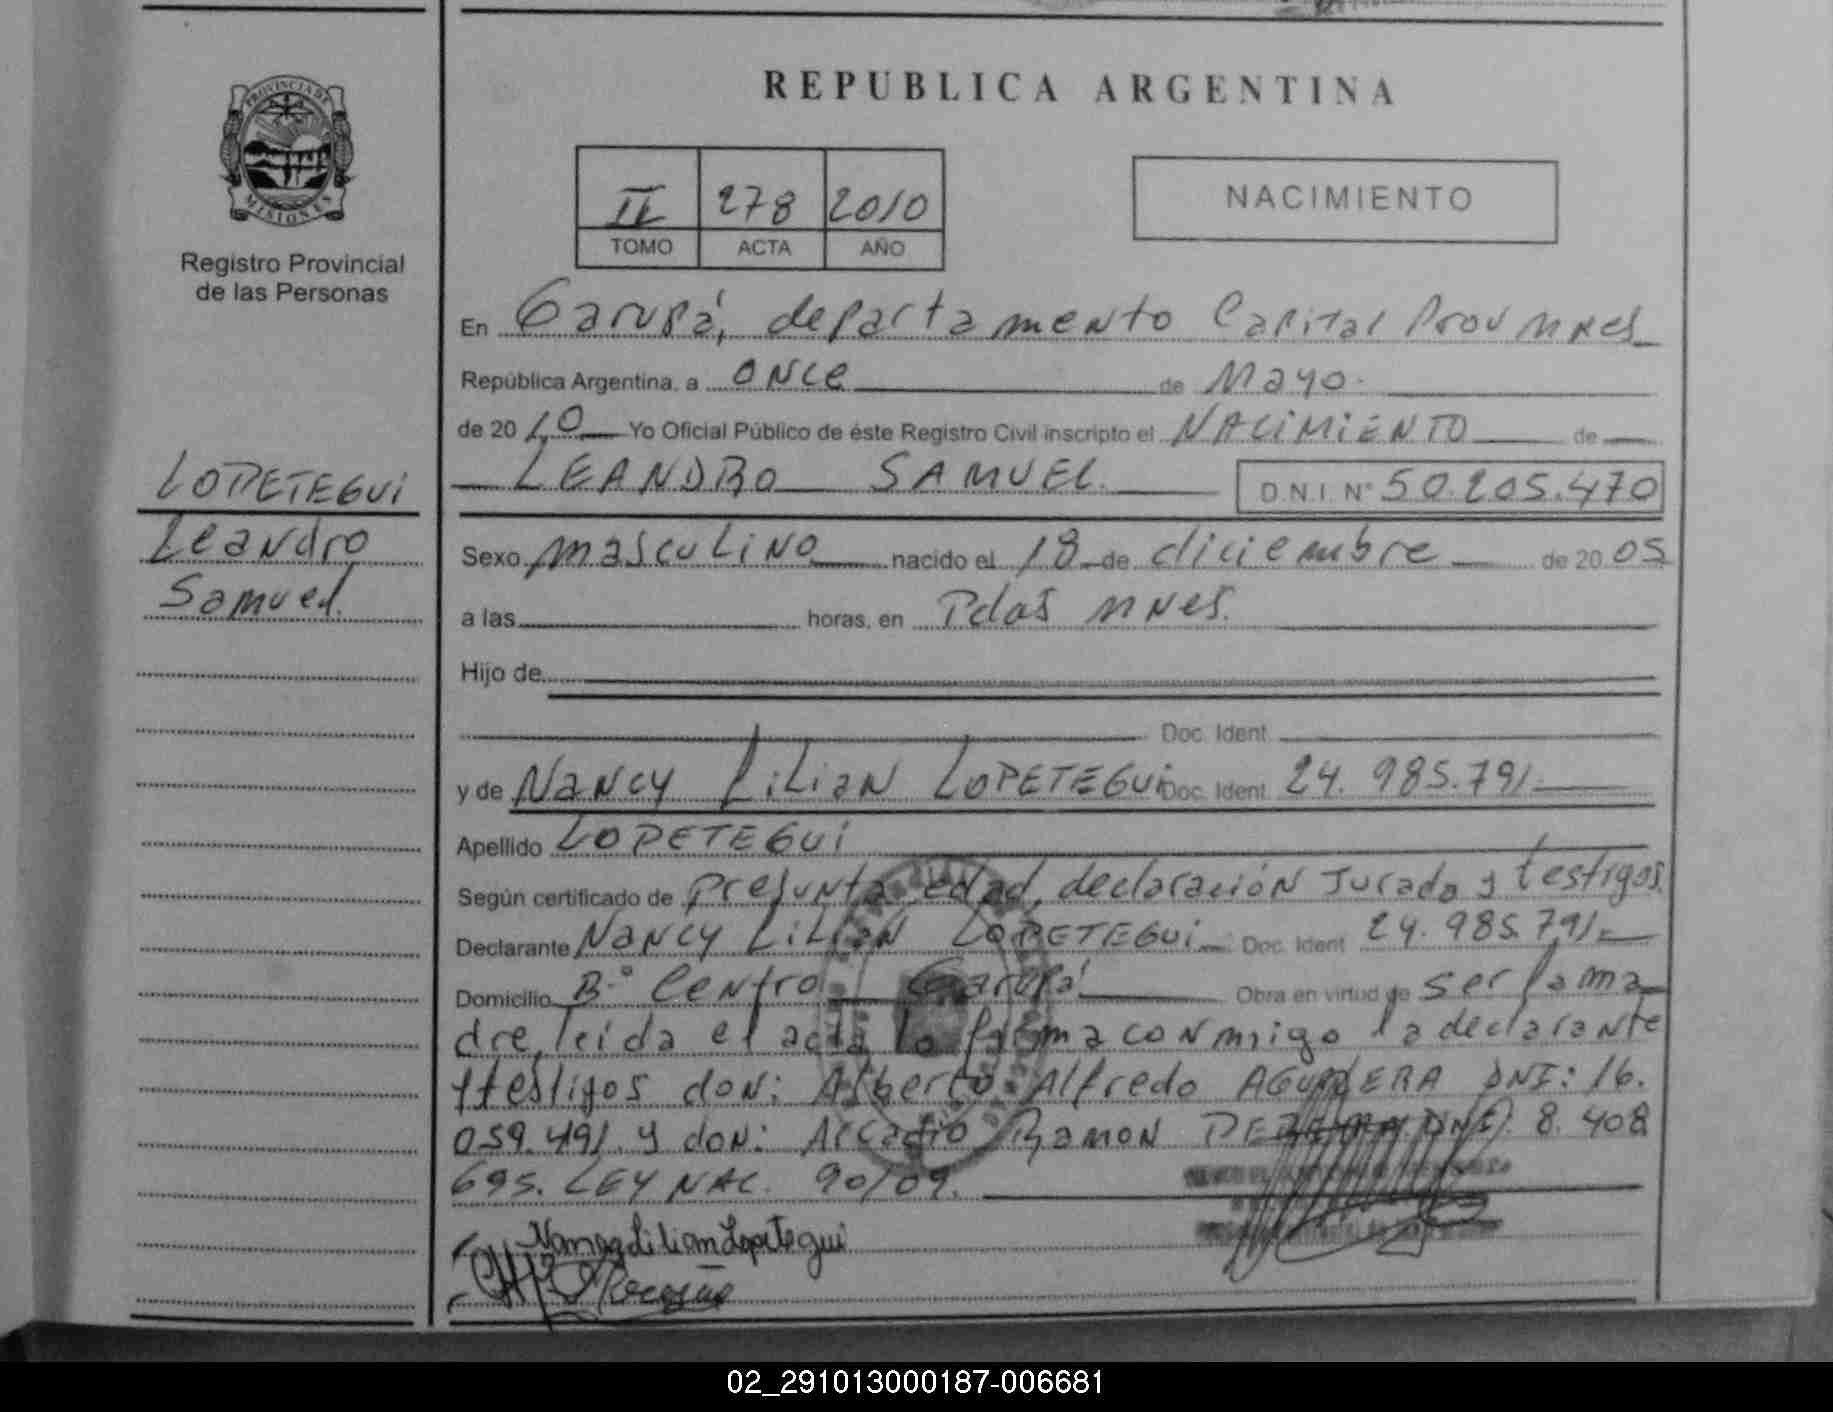 PROVINCIA DE
MISIONES
Registro Provincial
de las Personas
LOPETEGUI
Leandro
Samuel.
REPUBLICA ARGENTINA
II 278 2010
TOMO ACTA AÑO
NACIMIENTO
En Garupá, departamento Capital Prov Mnes
República Argentina, a once de Mayo.
de 2010 Yo Oficial Público de éste Registro Civil inscripto el NACIMIENTO de
LEANDRO SAMUEL. D.N.I. N° 50.205.470
Sexo masculino nacido el 18 de diciembre de 2005
a las horas, en Pdas Mnes.
Hijo de
Doc. Ident.
y de Nancy Lilian LOPETEGUI Doc. Ident. 24.985.791.
Apellido LOPETEGUI
Según certificado de presunta edad, declaración Jurada y testigos.
Declarante Nancy Lilian LOPETEGUI Doc. Ident. 24.985.791.
Domicilio B° Centro Garupá Obra en virtud de ser la ma
dre, leida el acta la firma conmigo la declarante
y testigos don: Alberto Alfredo AGUILERA DNI: 16.
059.491. y don: Arcadio Ramon DNI. 8.408
695. LEY NAC. 90/09.
Nancy Lilian Lopetegui
02_291013000187-006681